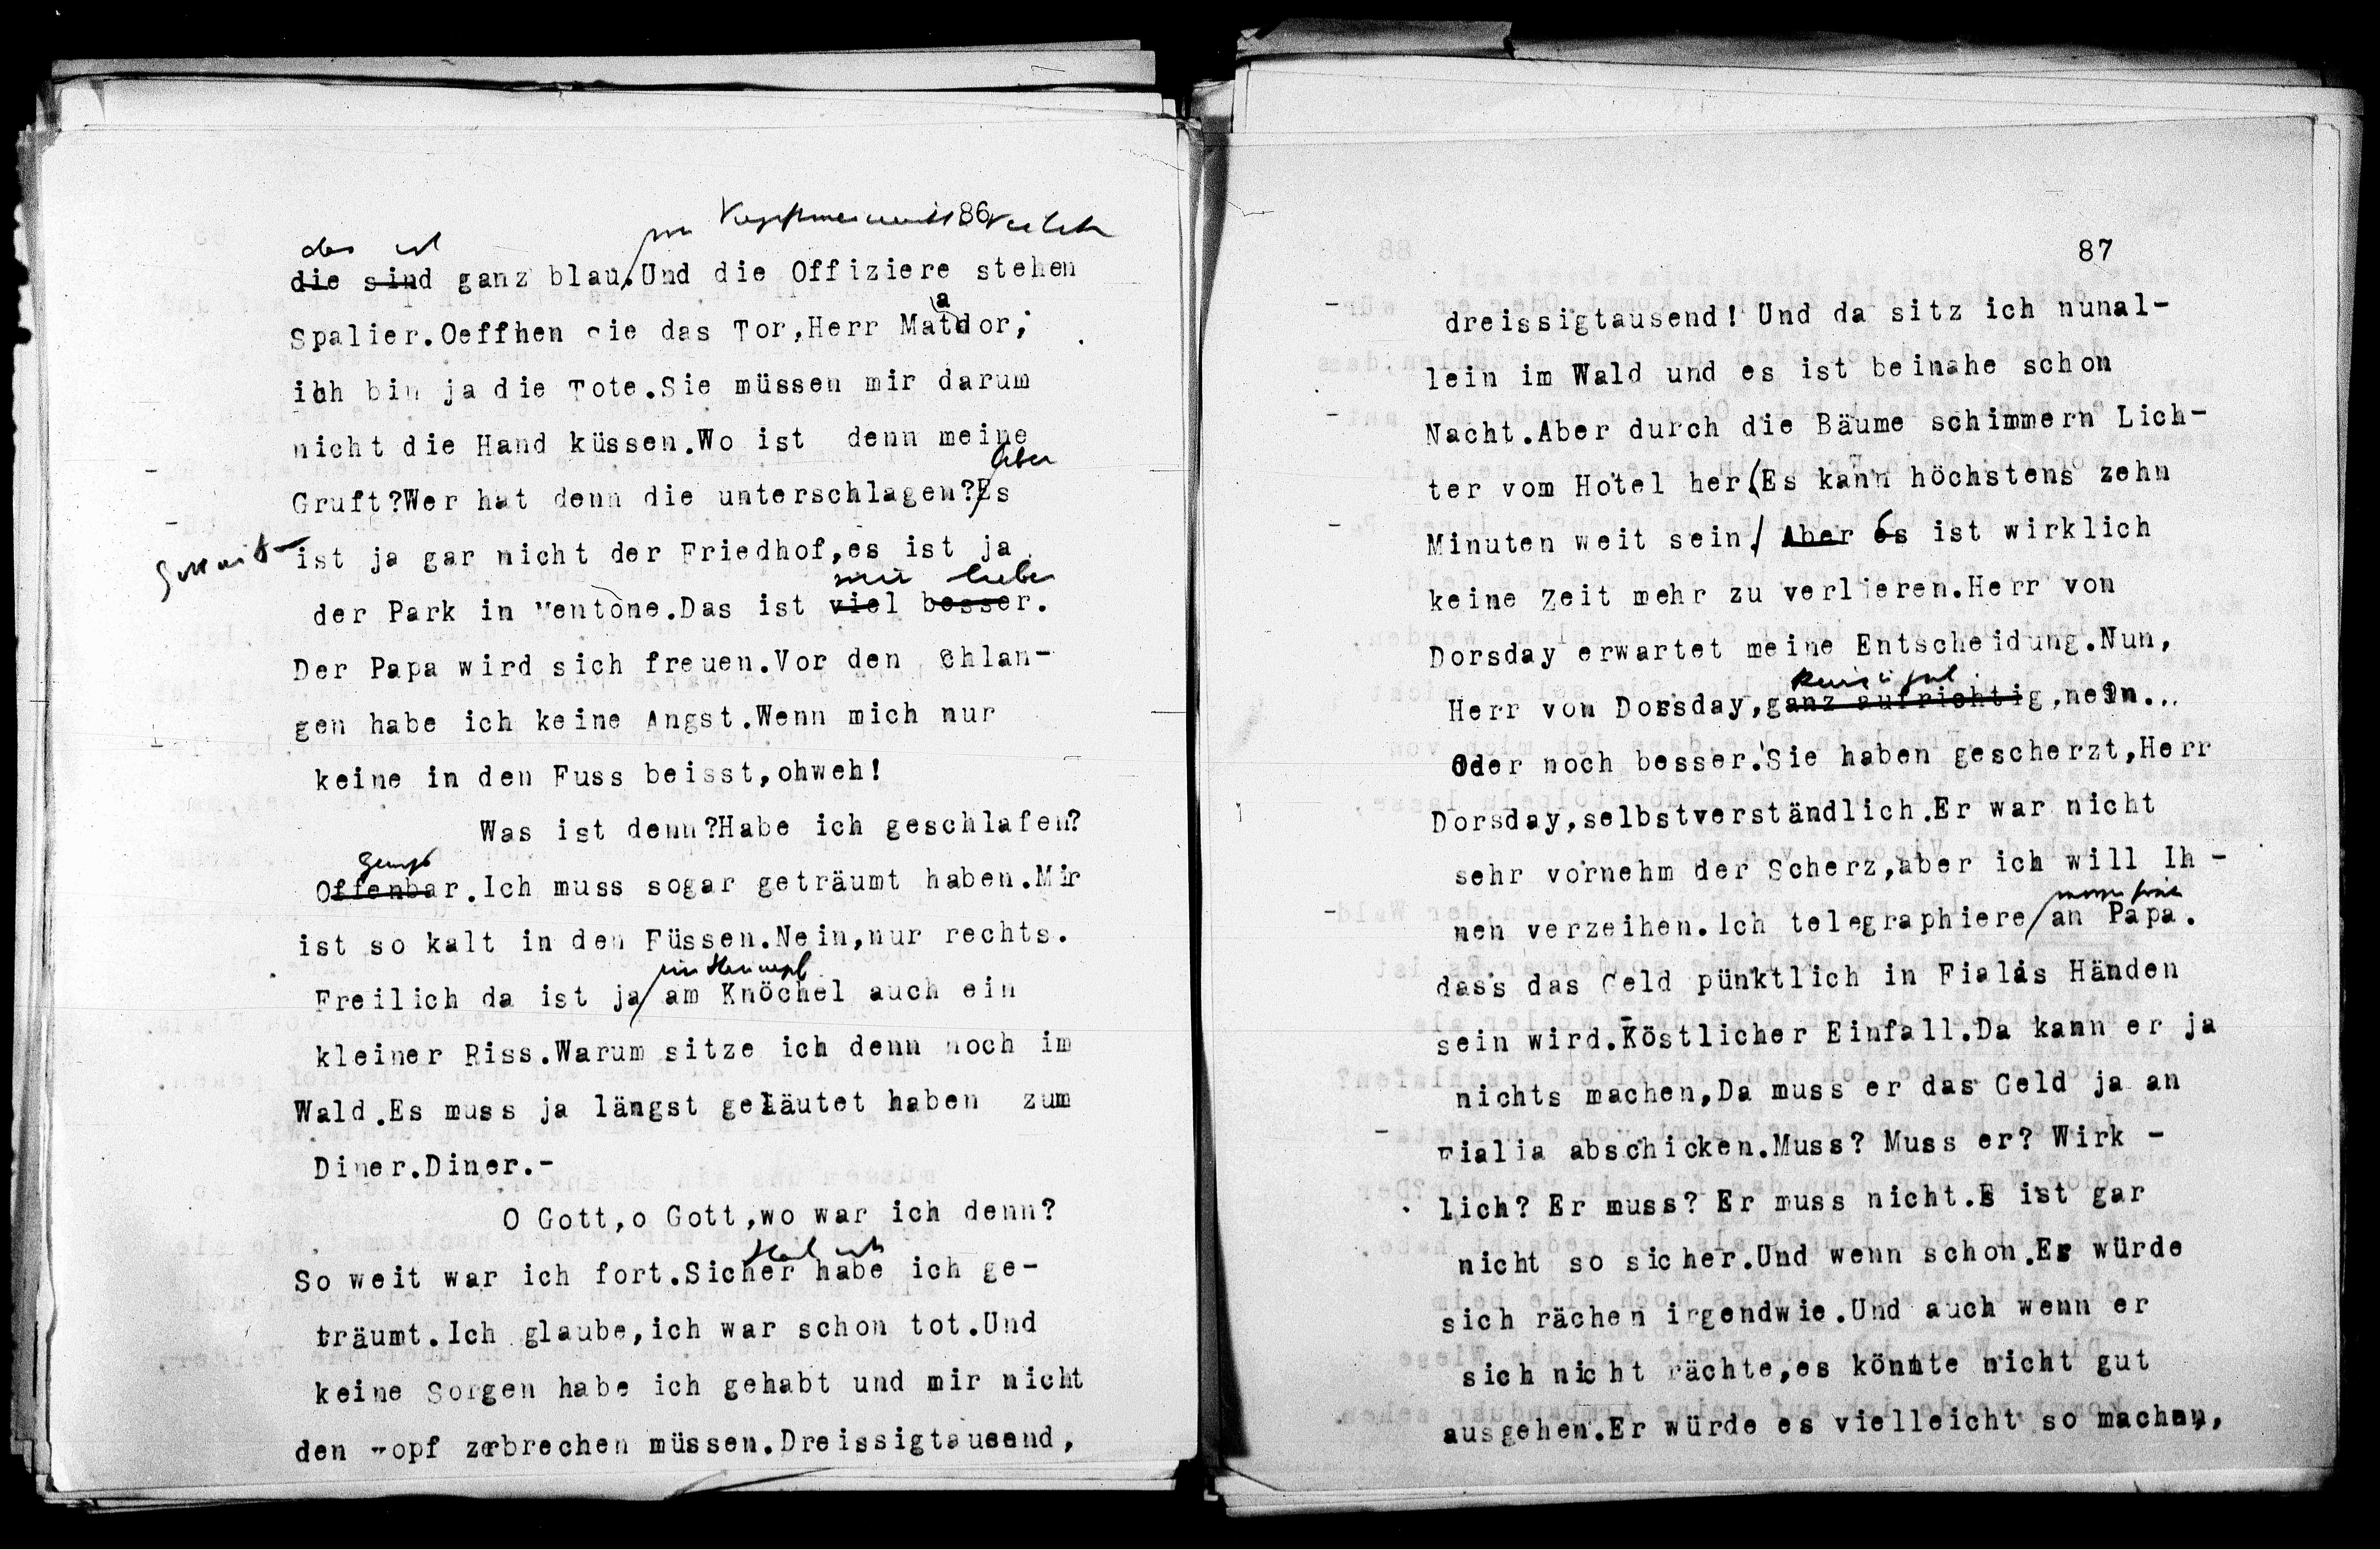 86
das ist
die sind ganz blau.Und die Offiziere stehen
a
Spalier.Oeffnen sie das Tor,Herr Matador;
ich bin ja die Tote.Sie müssen mir darum
nicht die Hand küssen.Wo ist denn meine
Aber
Gruft?Wer hat denn die unterschlagen?Es
ist ja gar nicht der Friedhof,es ist ja
mir lieber
der Park in Mentone.Das ist viel besser.
Der Papa wird sich freuen.Vor den Schlan-
gen habe ich keine Angst.Wenn mich nur
keine in den Fuss beisst,ohweh!
Was ist denn?Habe ich geschlafen?
Offenbar.Ich muss sogar geträumt haben.Mir
ist so kalt in den Füssen.Nein,nur rechts.
im Strumpf
Freilich da ist ja am Knöchel auch ein
kleiner Riss.Warum sitze ich denn noch im
Wald.Es muss ja längst geläutet haben zum
Diner.Diner.-
O Gott,o Gott,wo war ich denn?
So weit war ich fort.Sicher habe ich ge-
träumt.Ich glaube,ich war schon tot.Und
keine Sorgen habe ich gehabt und mir nicht
den Kopf zerbrechen müssen.Dreissigtausend,
87
dreissigtausend! Und da sitz ich nunal-
lein im Wald und es ist beinahe schon
Nacht.Aber durch die Bäume schimmern Lich-
ter vom Hotel her.(Es kann höchstens zehn
Minuten weit sein. Aber es ist wirklich
keine Zeit mehr zu verlieren.Herr von
Dorsday erwartet meine Entscheidung.Nun,
Herr von Dorsday,ganz aufrichtig,nein...
Oder noch besser:Sie haben gescherzt,Herr
Dorsday,selbstverständlich.Er war nicht
sehr vornehm der Scherz,aber ich will Ih -
morgen früh
nen verzeihen.Ich telegraphiere an Papa.
dass das Geld pünktlich in Fialas Händen
sein wird.Köstlicher Einfall.Da kann er ja
nichts machen,Da muss er das Geld ja an
Fialia abschicken.Muss? Muss er? Wirk -
lich? Er muss? Er muss nicht.E ist gar
nicht so sicher.Und wenn schon.Er würde
sich rächen irgendwie.Und auch wenn er
sich nicht rächte,es könnte nicht gut
ausgehen.Er würde es vielleicht so machen,